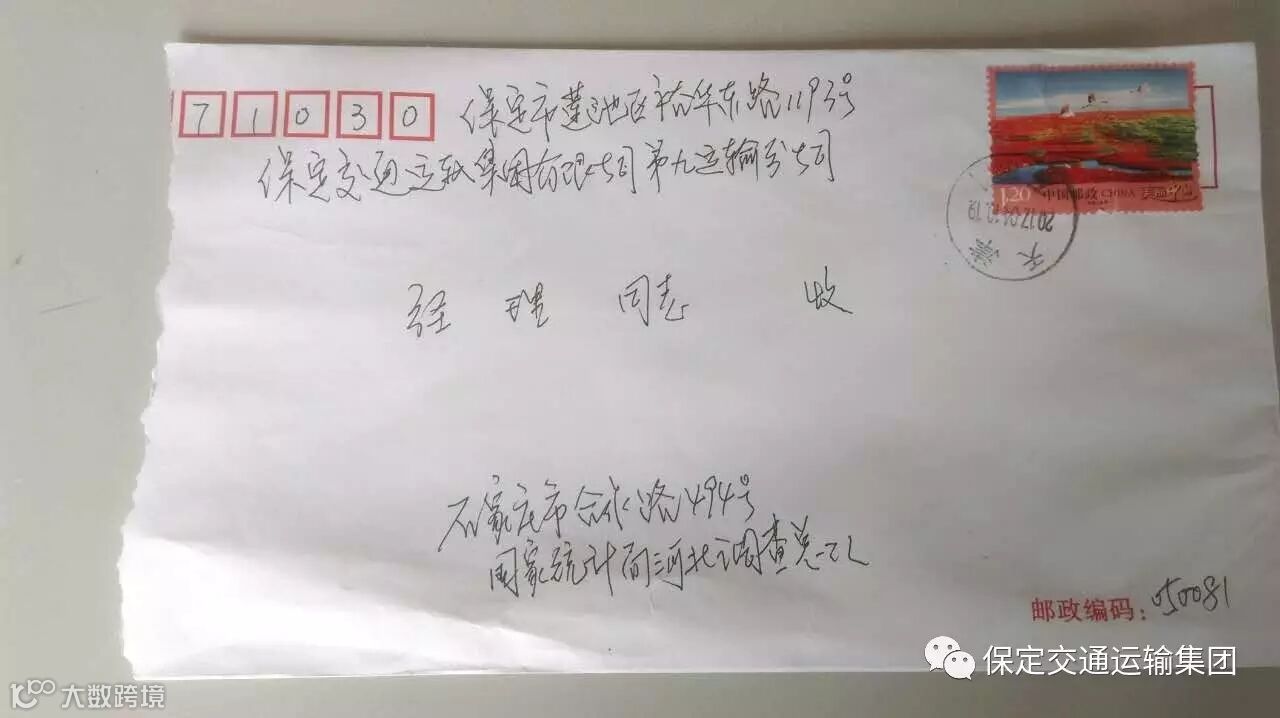 71030
保定市莲池区裕华东路1193号
保定交通运输集团有限公司第九运输分公司
1.20 中国邮政 CHINA 美丽中国
2017.04.12.19
天 桊
经 理 同志 收
石家庄市合作路494号
国家统计局河北调查总队
邮政编码：050081
保定交通运输集团
大数跨境